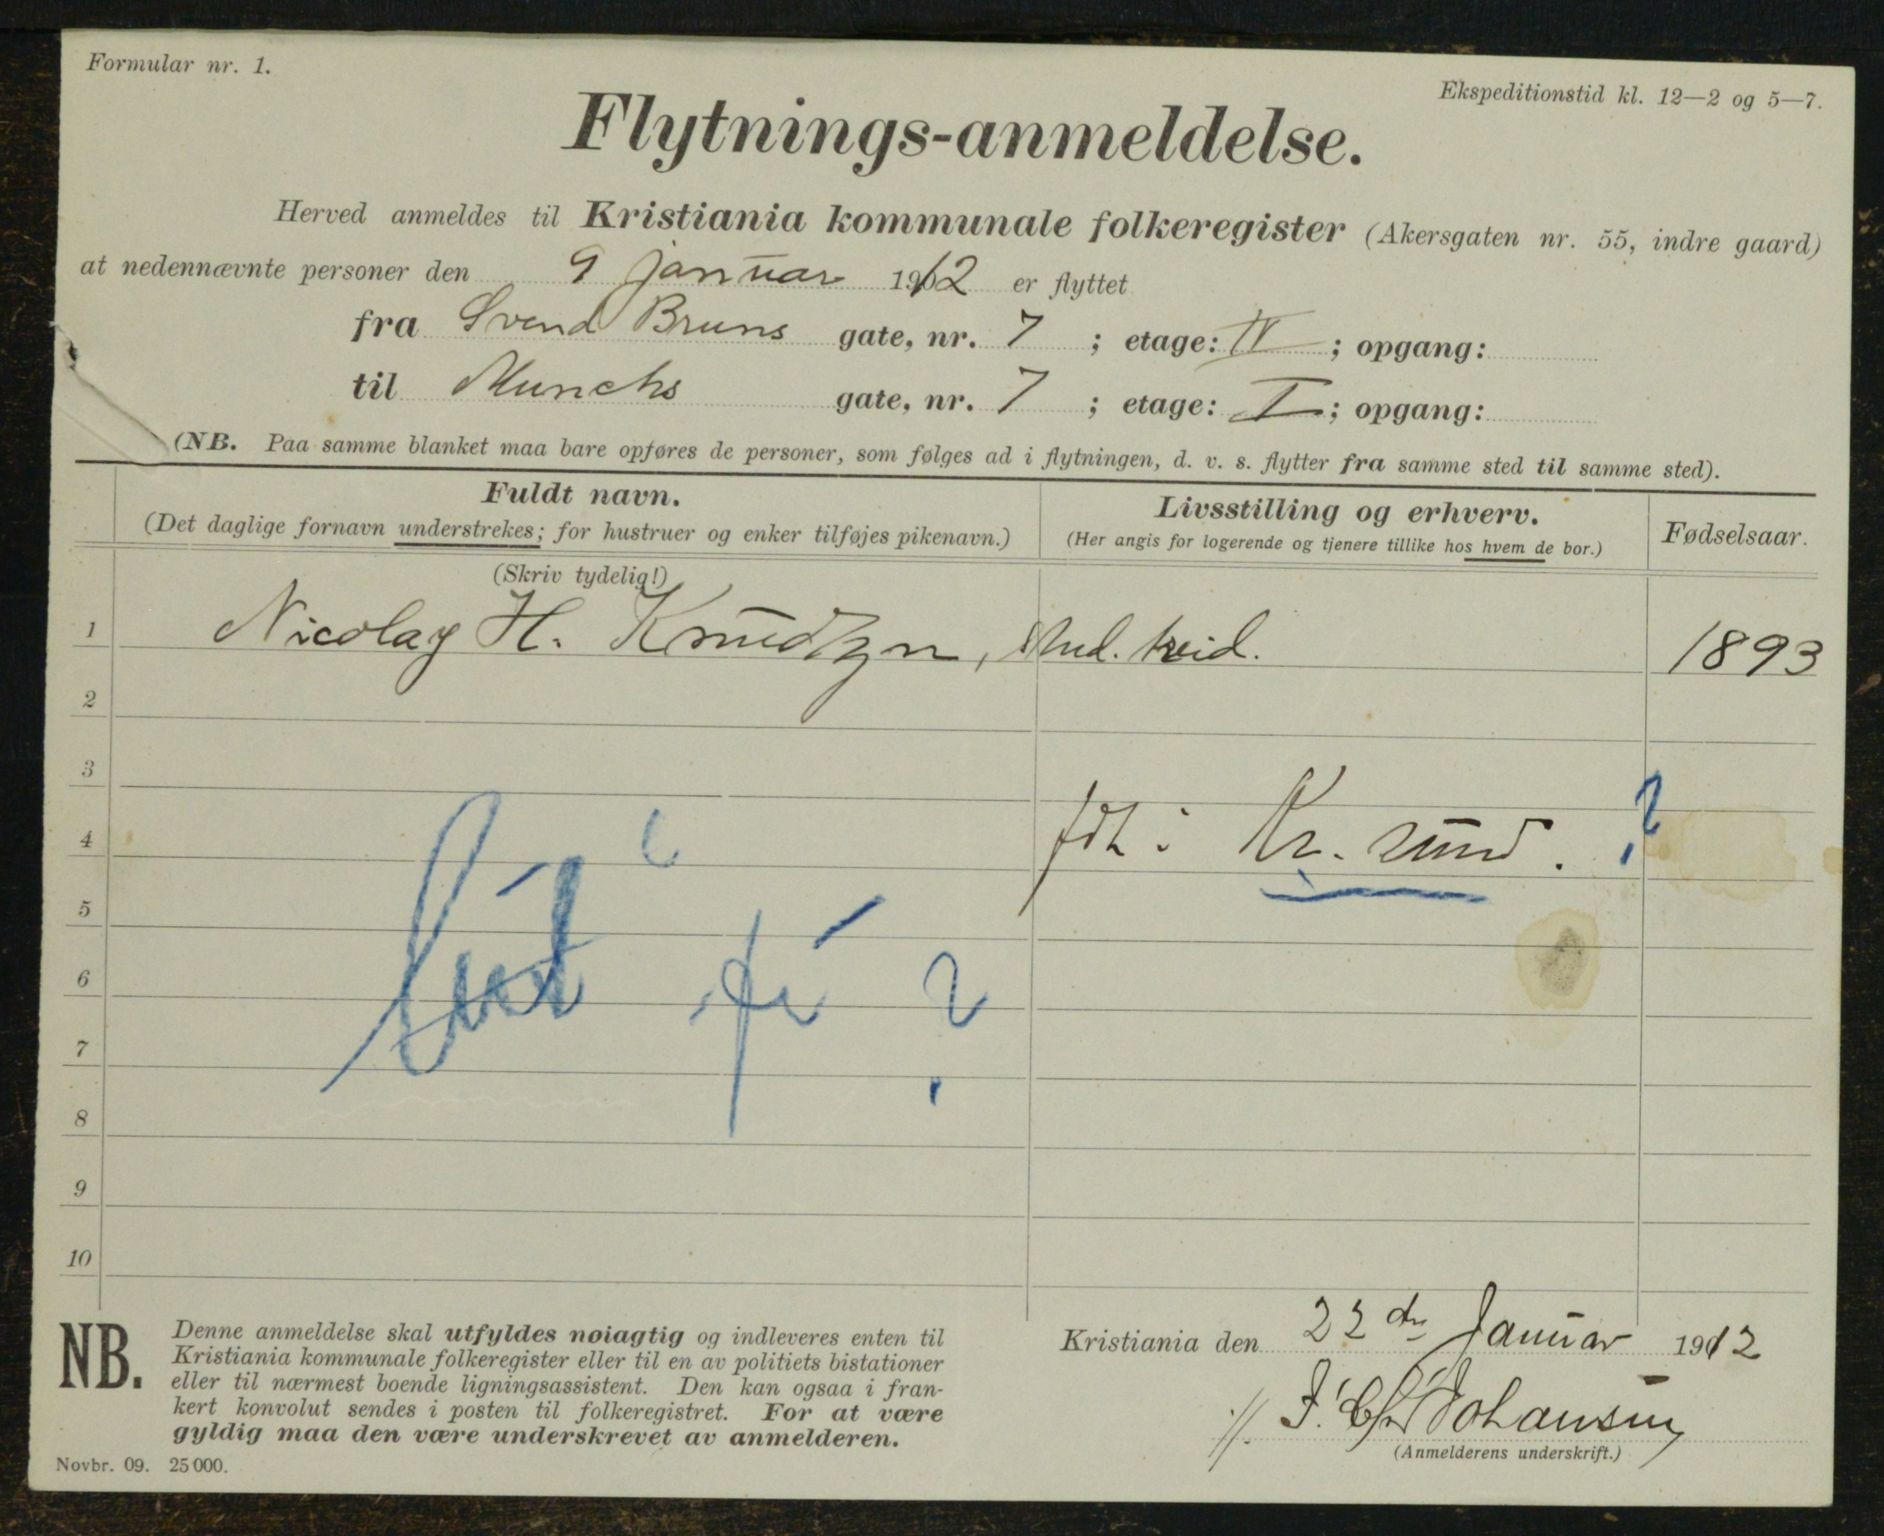 Formular nr. 1.
Ekspeditionstid kl. 12—2 og 5—7.
Flytnings-anmeldelse.
Herved anmeldes til Kristiania kommunale folkeregister (Akersgaten nr. 55, indre gaard)
at nedennævnte personer den 9 januar 1912 er flyttet
fra Svend Bruns gate, nr. 7 ; etage: IV ; opgang:
til Munchs gate, nr. 7 ; etage: I ; opgang:
(NB. Paa samme blanket maa bare opføres de personer, som følges ad i flytningen, d. v. s. flytter fra samme sted til samme sted).
Fuldt navn.
(Det daglige fornavn understrekes; for hustruer og enker tilføjes pikenavn.)
Livsstilling og erhverv.
(Her angis for logerende og tjenere tillike hos hvem de bor.)
Fødselsaar.
(Skriv tydelig!)
1 Nicolay H. Knudtzon, stud. 1893
2
3
4 født i Kr. sund. ?
5
6 ?
7
8
9
10
NB.
Denne anmeldelse skal utfyldes nøiagtig og indleveres enten til
Kristiania kommunale folkeregister eller til en av politiets bistationer
eller til nærmest boende ligningsassistent. Den kan ogsaa i fran-
kert konvolut sendes i posten til folkeregistret. For at være
gyldig maa den være underskrevet av anmelderen.
Kristiania den 22 de Januar 1912
Johansen
(Anmelderens underskrift.)
Novbr. 09. 25 000.